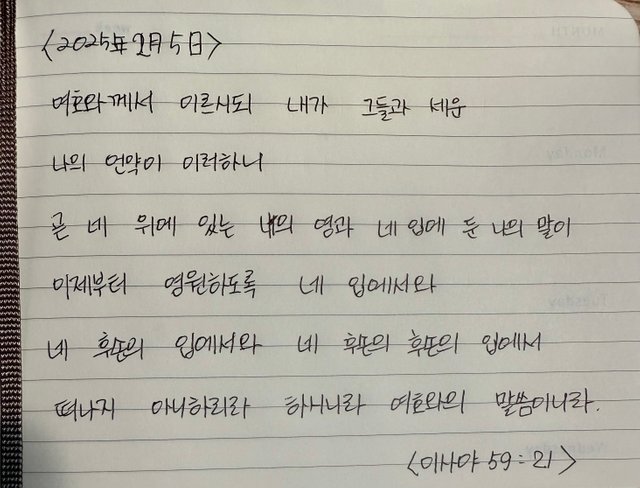 <2025年 2月 5日>
여호와께서 이르시되 내가 그들과 세운
나의 언약이 이러하니
곧 네 위에 있는 나의 영과 네 입에 둔 나의 말이
이제부터 영원하도록 네 입에서와
네 후손의 입에서와 네 후손의 후손의 입에서
떠나지 아니하리라 하시니라 여호와의 말씀이니라.
<이사야 59:21>
MONTH
Monday
Tuesday
Wednesday